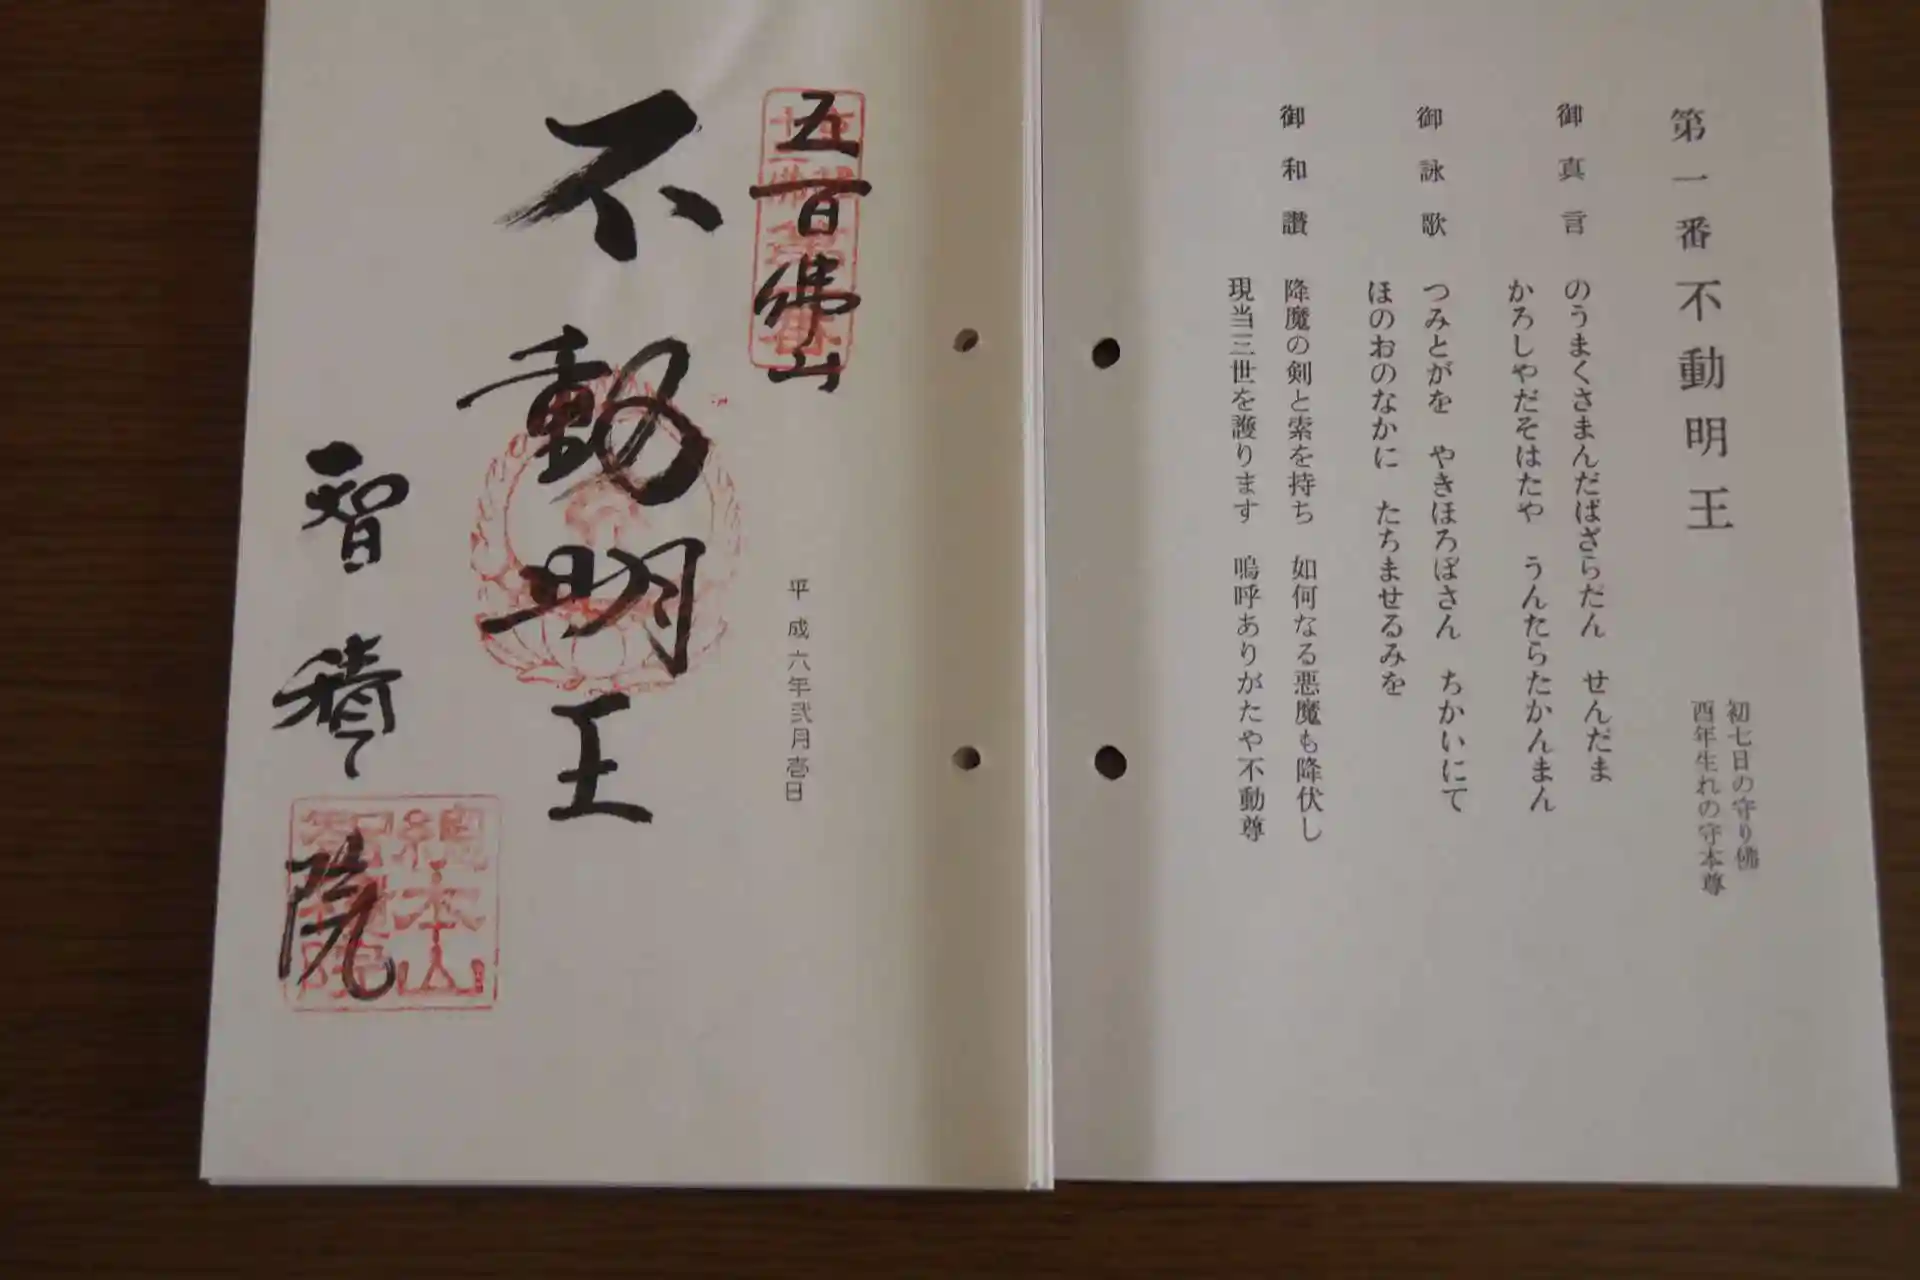 第一番 不動明王
初七日の守り佛
酉年生れの守本尊
御真言
のうまくさまんだばざらだん せんだま
かろしやだそはたや うんたらたかんまん
御詠歌
つみとがを やきほろぼさん ちかいにて
ほのおのなかに たちませるみを
御和讃
降魔の剣と索を持ち 如何なる悪魔も降伏し
現当三世を護ります 嗚呼ありがたや不動尊
五百佛山
平成六年弐月壱日
不動明王
智積院
總本山
智積院